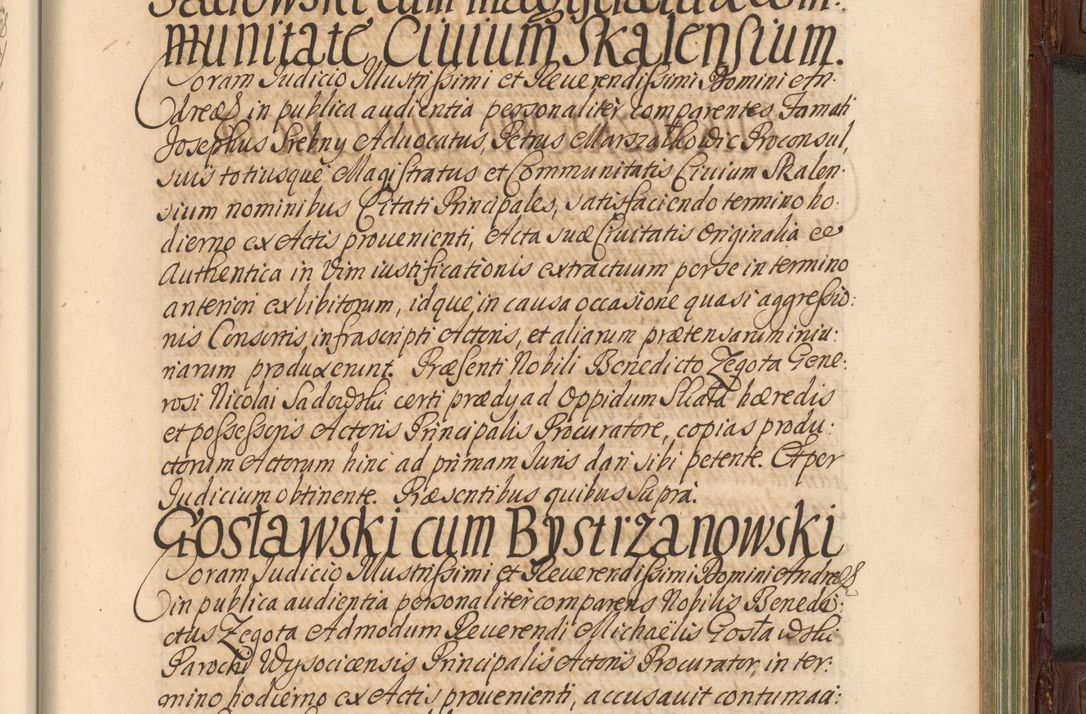 Sadowski cum magistratu et com-
munitate Civium Skalensium.
Coram Judicio Illustrissimi et Reverendissimi Domini An-
dreæ in publica audientia personaliter comparentes Famati
Josephus Srebny Advocatus, Petrus Marszalkowic Proconsul,
suis totiusque Magistratus et Communitatis Civium Skalen-
sium nominibus Citati Principales, satisfaciendo termino ho-
dierno ex Actis provenienti, Acta suæ Civitatis Originalia ee
Authentica in vim iustificationis extractuum per se in termino
anteriori exhibitorum, idque in causa occasione quasi aggressio:
nis Consortis infrascripti Actoris, et aliarum prætensarum iniu:
riarum produxerunt. Præsenti Nobili Benedicto Zegota Gene:
rosi Nicolai Sadowski certi prædy ad Oppidum Skała hæredis
et possessoris Actoris Principalis Procuratore, copias produ:
ctorum Actorum hinc ad primam Juris dari sibi petente. Et per
Judicium obtinente. Præsentibus quibus supra.
Gosławski cum Bystrzanowski
Coram Judicio Illustrissimi et Reverendissimi Domini Andreæ
in publica audientia personaliter comparens Nobilis Benedi:
ctus Zegota Admodum Reverendi Michaëlis Gosławski
Parochi Wysocicensis Principalis Actoris Procurator, in ter:
mino hodierno ex Actis provenienti, accusavit contumaci: